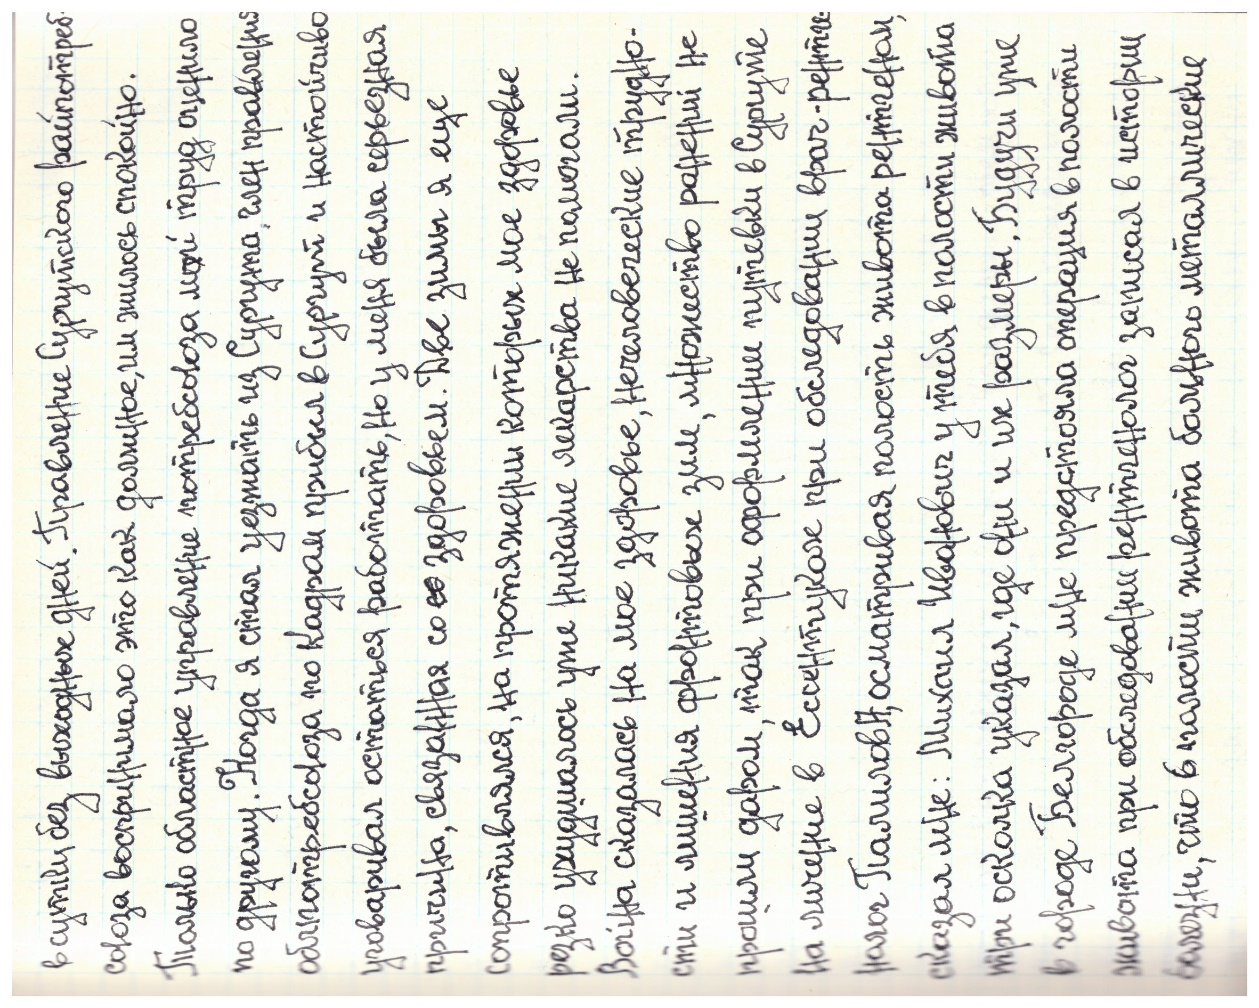 в сутки без выходных дней. Правление Сургутского райпотреб-
союза воспринимало это как должное, им жилось спокойно.
Только областное управление потребсоюза мой труд оценило
по другому. Когда я стал уезжать из Сургута, член правления
облпотребсоюза по кадрам прибыл в Сургут и настойчиво
уговаривал остаться работать, но у меня была серьезная
причина, связанная со здоровьем. Две зимы я еще
сопротивлялся, на протяжении которых мое здоровье
резко ухудшалось уже никакие лекарства не помогали.
Война сказалась на мое здоровье, нечеловеческие трудно-
сти и лишения фронтовых зим, множество ранений не
прошли даром, так при оформлении путевки в Сургуте
на лечение в Ессентуках при обследовании врач-рентге
нолог Паламов Н, осматривая полость живота рентгеном,
сказал мне: Михаил Иванович у тебя в полости живота
три осколка указал, где они и их размеры. Будучи уже
в городе Белгороде мне предстояла операция в полости
живота при обследовании рентгенолог записал в истории
болезни, что в полости живота больного металлические